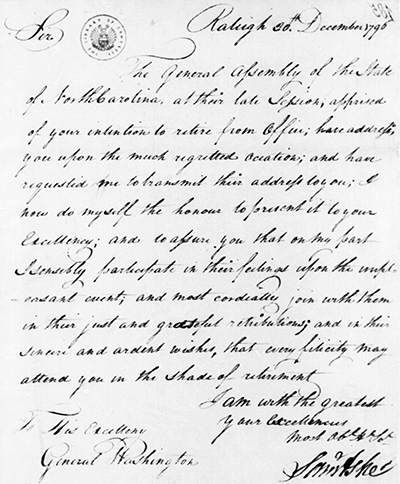 Raleigh 30th December 1796
Sir,
The General Assembly of the State
of North Carolina, at their late Session, apprised
of your intention to retire from Office; have address'd
you upon the much regretted Occation; and have
requested me to transmit their address to you; I
now do myself the honour to present it to your
Excellency; and to assure you that on my part
I sensibly participate in their feelings upon the unpl-
-easant event; and most cordially join with them
in their just and grateful retributions; and in their
sincere and ardent wishes, that every filicity may
attend you in the shade of retirement
I am with the greatest
Your Excellencies
Most Obt. Hl. St.
Saml Ashe
To His Excellency
General Washington